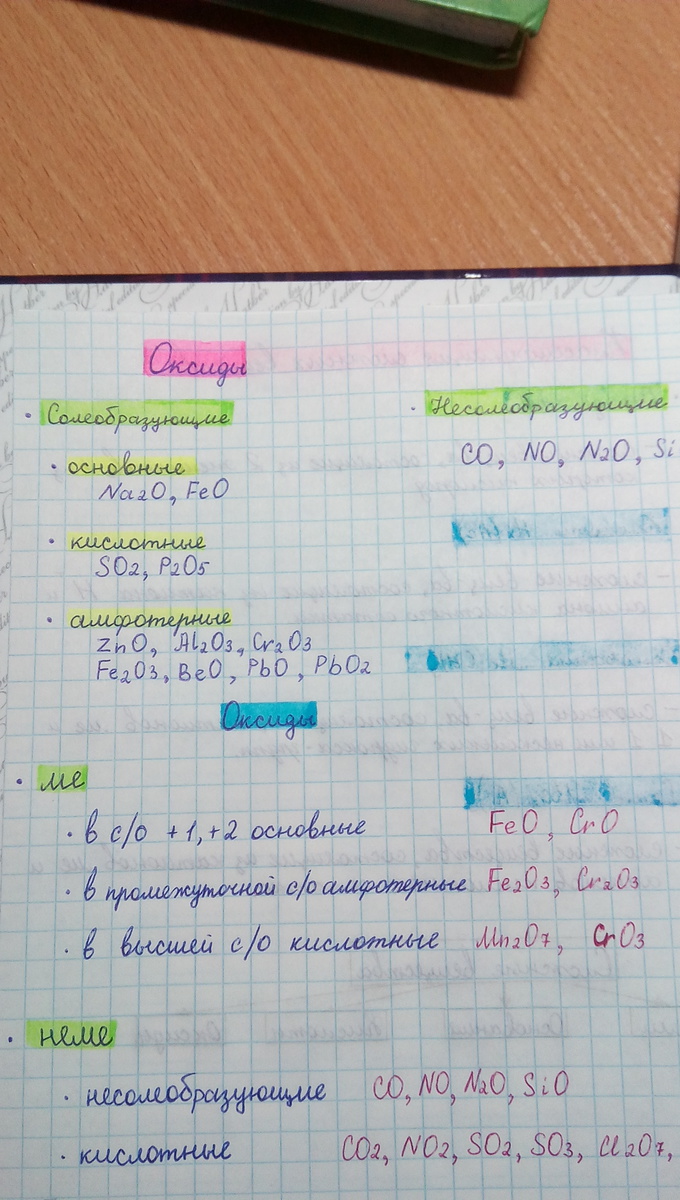 Оксиды
· Солеобразующие
· Несолеобразующие
· основные
CO, NO, N2O, Si
Na2O, FeO
· кислотные
SO2, P2O5
· амфотерные
ZnO, Al2O3, Cr2O3
Fe2O3, BeO, PbO, PbO2
Оксиды
· ме
· в с/о +1, +2 основные FeO, CrO
· в промежуточной с/о амфотерные Fe2O3, Cr2O3
· в высшей с/о кислотные Mn2O7, CrO3
· неме
· несолеобразующие CO, NO, N2O, SiO
· кислотные CO2, NO2, SO2, SO3, Cl2O7,